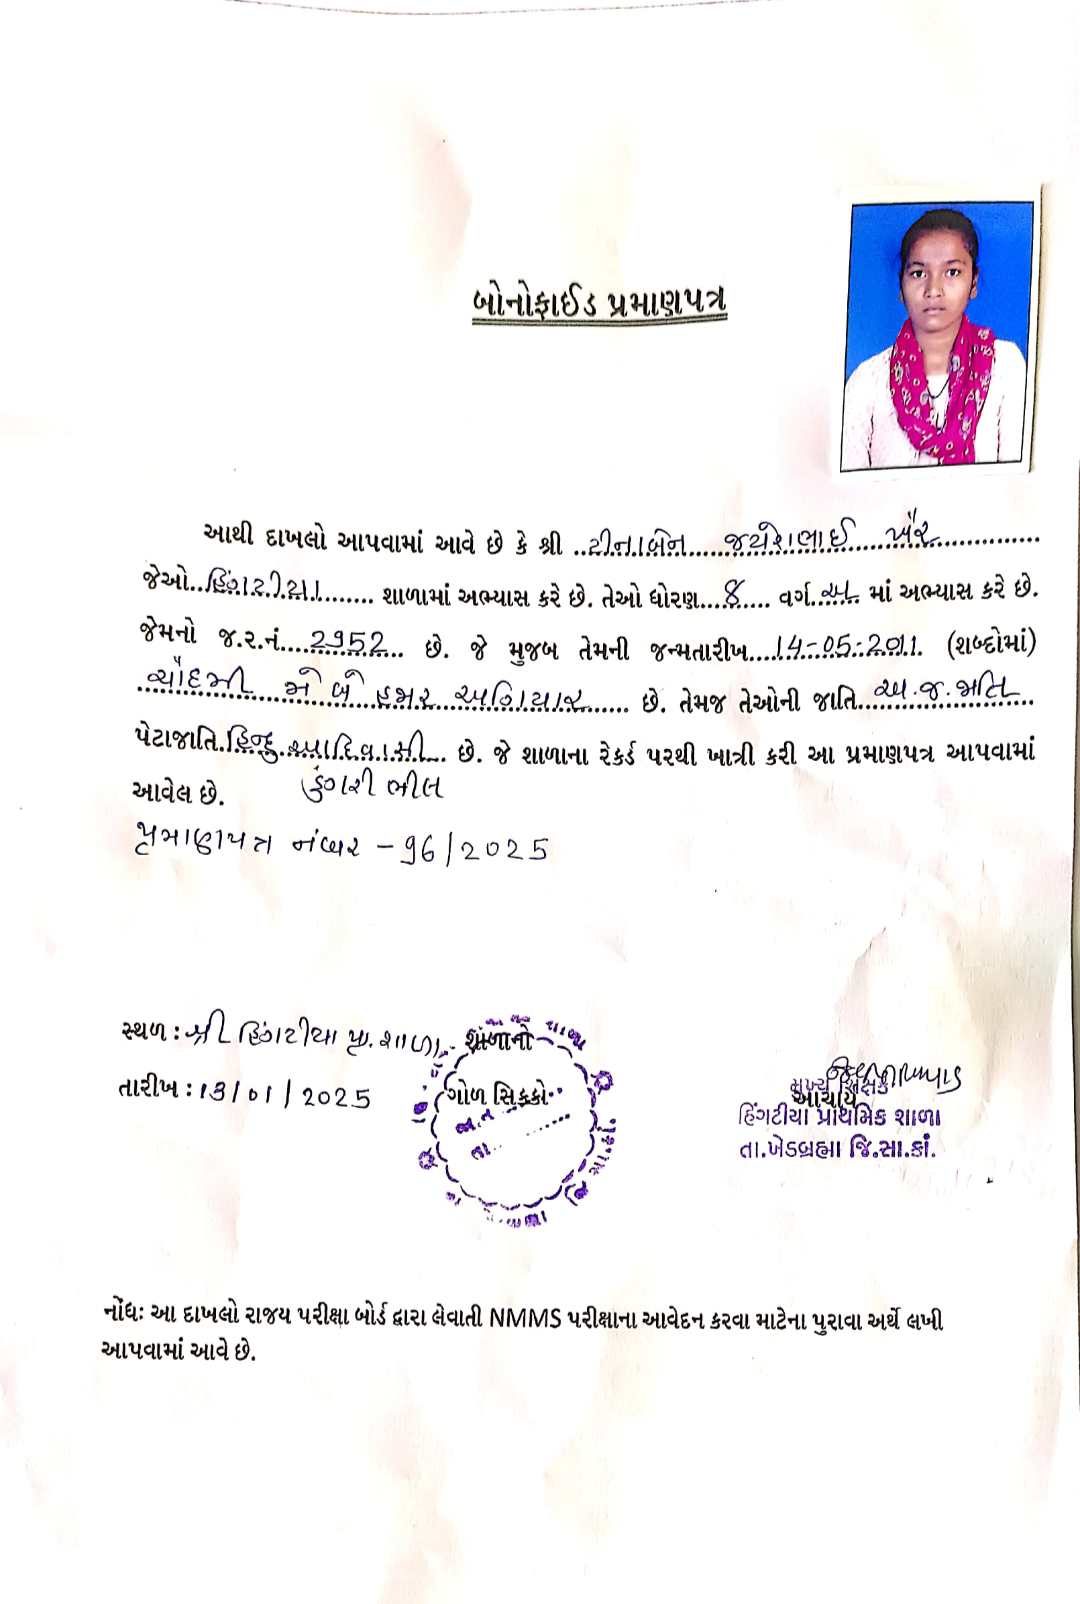 બોનોફાઈડ પ્રમાણપત્ર
આથી દાખલો આપવામાં આવે છે કે શ્રી ..ટીનાબેન.....જયેશભાઈ.....ખૈર..............
જેઓ..હિંગટીયા........ શાળામાં અભ્યાસ કરે છે. તેઓ ધોરણ....8..... વર્ગ..અ.. માં અભ્યાસ કરે છે.
જેમનો જ.ર.નં....2952... છે. જે મુજબ તેમની જન્મતારીખ....14-05-2011. (શબ્દોમાં)
ચૌદમી મે બે હજાર અગિયાર...... છે. તેમજ તેઓની જાતિ..અ.જ.જાતિ..
પેટાજાતિ.હિન્દુ.આદિવાસી... છે. જે શાળાના રેકર્ડ પરથી ખાત્રી કરી આ પ્રમાણપત્ર આપવામાં
આવેલ છે. ડુંગરી ભીલ
પ્રમાણપત્ર નંબર - 96/2025
સ્થળ : શ્રી હિંગટીયા પ્રા. શાળા
શાળાનો
તારીખ : 13/01/2025
ગોળ સિક્કો
તા...
મુખ્ય શિક્ષક
આચાર્ય
હિંગટીયા પ્રાથમિક શાળા
તા.ખેડબ્રહ્મા જિ.સા.કાં.
નોંધઃ આ દાખલો રાજય પરીક્ષા બોર્ડ દ્વારા લેવાતી NMMS પરીક્ષાના આવેદન કરવા માટેના પુરાવા અર્થે લખી
આપવામાં આવે છે.